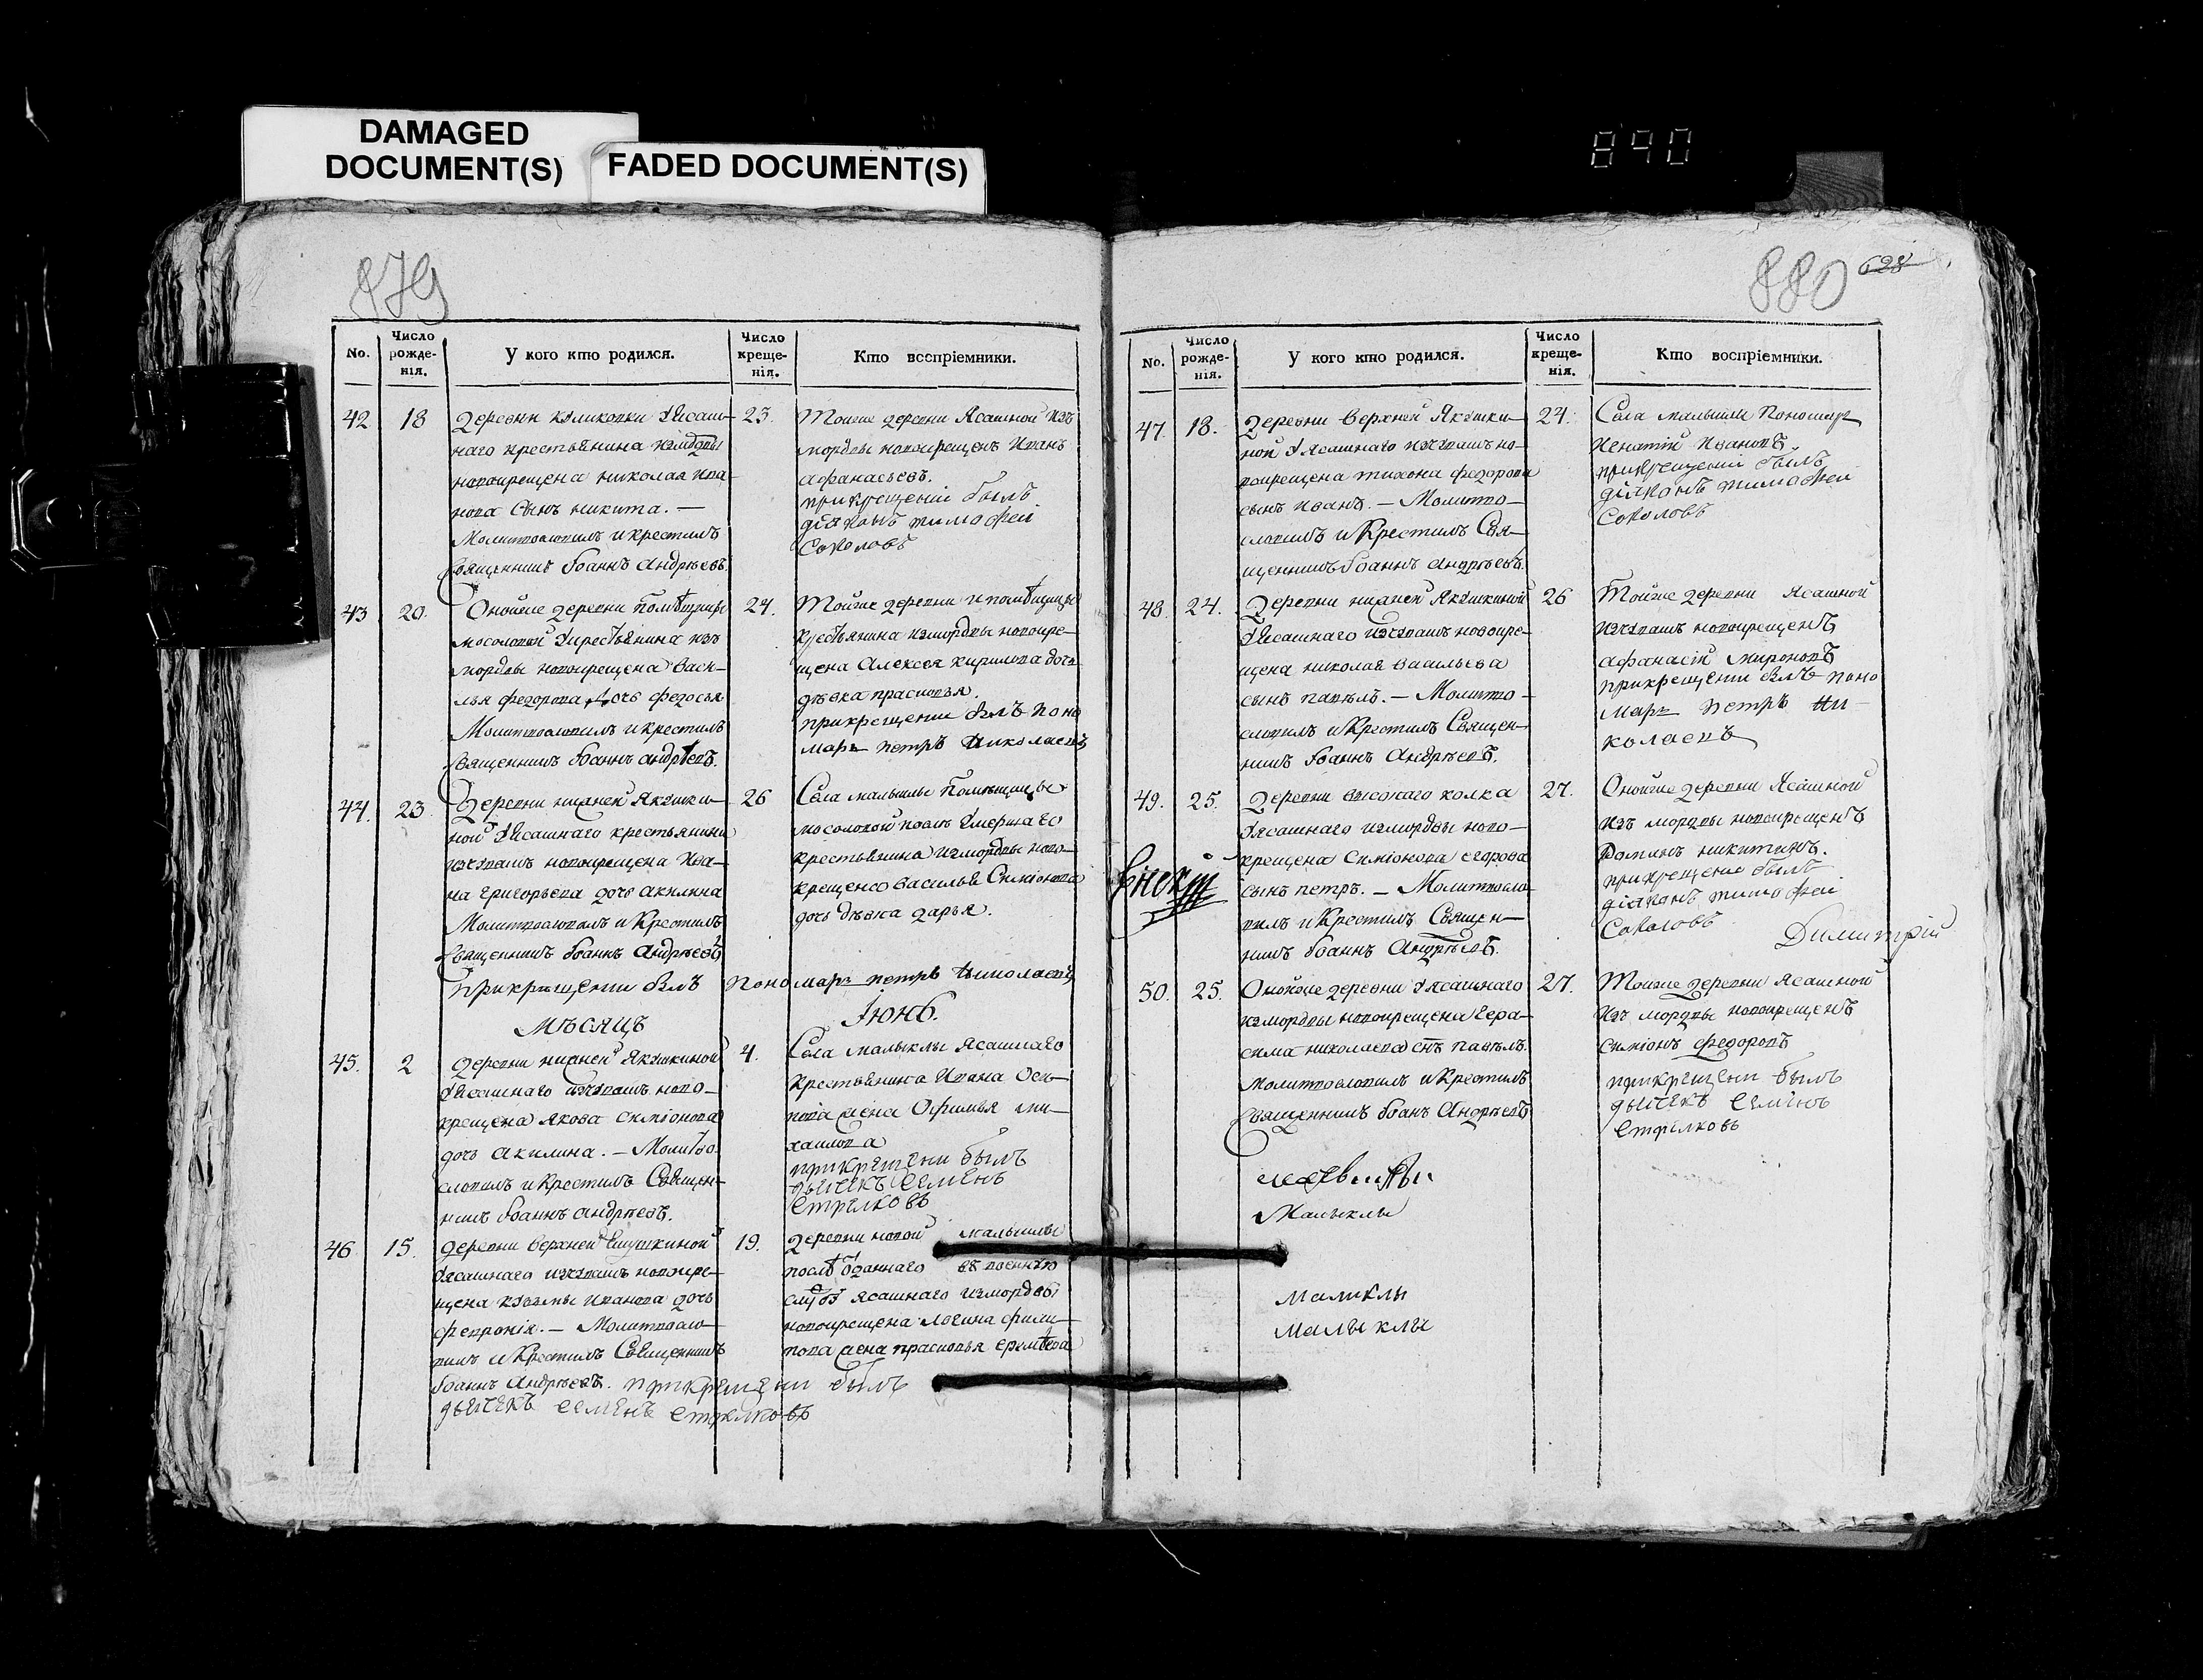 DAMAGED
DOCUMENT(S)
FADED DOCUMENT(S)
890
879
No.
Число рожде-нія.
У кого кто родился.
Число креще-нія.
Кто воспріемники.
42
18
Деревни куликовки у Ясаш-
наго крестьянина измордвы
новокрещена николая ива-
нова сынъ никита. —
Молитвословилъ и крестилъ
Священникъ Іоаннъ Андреевъ.
23.
Тойже деревни Ясашной изъ
мордвы новокрещенъ Иванъ
афанасьевъ.
прикрещеніи былъ
діяконъ тимофеи
Соколовъ
43
20.
Оной же деревни помѣщицы
мосоловой у крестьянина изъ
мордвы новокрещена васи-
лья федорова дочь федосья
Молитвословилъ и крестилъ
Священникъ Іоаннъ андрѣевъ.
24.
Тойже деревни и помѣщицы
крестьянина измордвы новокре-
щена Алексея кирилова дочь
дѣвка прасковья.
прикрещении былъ поно
марь петръ николаевъ
44.
23
Деревни нижней Якушки-
ной у Ясашнаго крестьянина
изчувашъ новокрещена ива-
на григорьева дочь акилина
Молитвословилъ и Крестилъ
Священникъ Іоаннъ Андреевъ
26
Села малыклы помѣщицы
мосоловой послѣ умершаго
крестьянина измордвы ново-
крещенсо василья Симіонова
дочь дѣвка дарья.
прикрещении былъ пономарь петръ николаевъ
Мѣсяцъ Іюнь.
45.
2
Деревни нижней Якушкиной
у Ясашнаго изчувашъ ново-
крещена якова симіонова
дочь акилина. — Молитво
словилъ и Крестилъ Священ-
никъ Іоаннъ андрѣевъ.
4.
Села малыклы ясашнаго
крестьянина Ивана Оси-
пова жена Офимья ми-
хаилова
прикрещени былъ
дьячекъ семенъ
стрелковъ
46
15.
деревни верхней Якушкиной
у Ясашнаго изчувашъ новокре-
щена кузьмы иванова дочь
февронія. — Молитвосло-
вилъ и Крестилъ Священникъ
Іоаннъ Андреевъ. прикрещени былъ
дьячекъ семенъ стрелковъ
19.
Деревни новой малыклы
послѣ отданнаго въ военную
службу ясашнаго измордвы
новокрещена логина фили-
пова жена прасковья еремѣева
880
628
No.
Число рожде-нія.
У кого кто родился.
Число креще-нія.
Кто воспріемники.
47.
18.
Деревни верхней Якушки-
ной у Ясашнаго изчувашъ но-
вокрещена тихона федорова
сынъ иванъ. — Молитво-
словилъ и Крестилъ Свя-
щенникъ Іоаннъ андреевъ.
24.
Села малыклы пономарь
Игнатій Ивановъ.
прикрещеніи былъ
діяконъ тимофеи
Соколовъ
48.
24.
Деревни нижней Якушкиной
у Ясашнаго изчувашъ новокре-
щена николая васильева
сынъ павелъ. — Молитво-
словилъ и Крестилъ Священ-
никъ Іоаннъ Андрѣевъ.
26
Тойже деревни Ясашной
изчувашъ новокрещенъ
афанасій мироновъ
прикрещении былъ поно
марь петръ ни-
колаевъ
49.
25.
Деревни высокаго колка
у ясашнаго измордвы ново-
крещена Симіонова егорова
сынъ петръ. — Молитвосло-
вилъ и Крестилъ Священ-
никъ Іоаннъ Андрѣевъ.
27.
Оной же деревни Ясашной
изъ мордвы новокрещенъ
Романъ никитинъ.
прикрещение былъ
діяконъ тимофеи
Соколовъ
Димитрій
50.
25.
Оной же деревни у ясашнаго
измордвы новокрещена гера-
сима николаева снъ павелъ.
Молитвословилъ и Крестилъ
Священникъ Іоанъ Андрѣевъ
27.
Тойже деревни Ясашной
изъ мордвы новокрещенъ
симіонъ федоровъ
прикрещени былъ
дьячекъ семенъ
стрелковъ
Малыклы
Маликлы
Малыклы